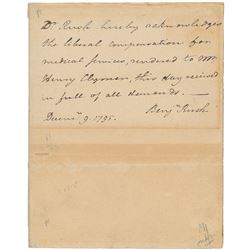 Dr Rush hereby acknowledges
the liberal compensation for
medical services, rendered to Mr
Henry Clymer, this day received
in full of all demands. —
Benjn Rush
Decemr 9. 1795.